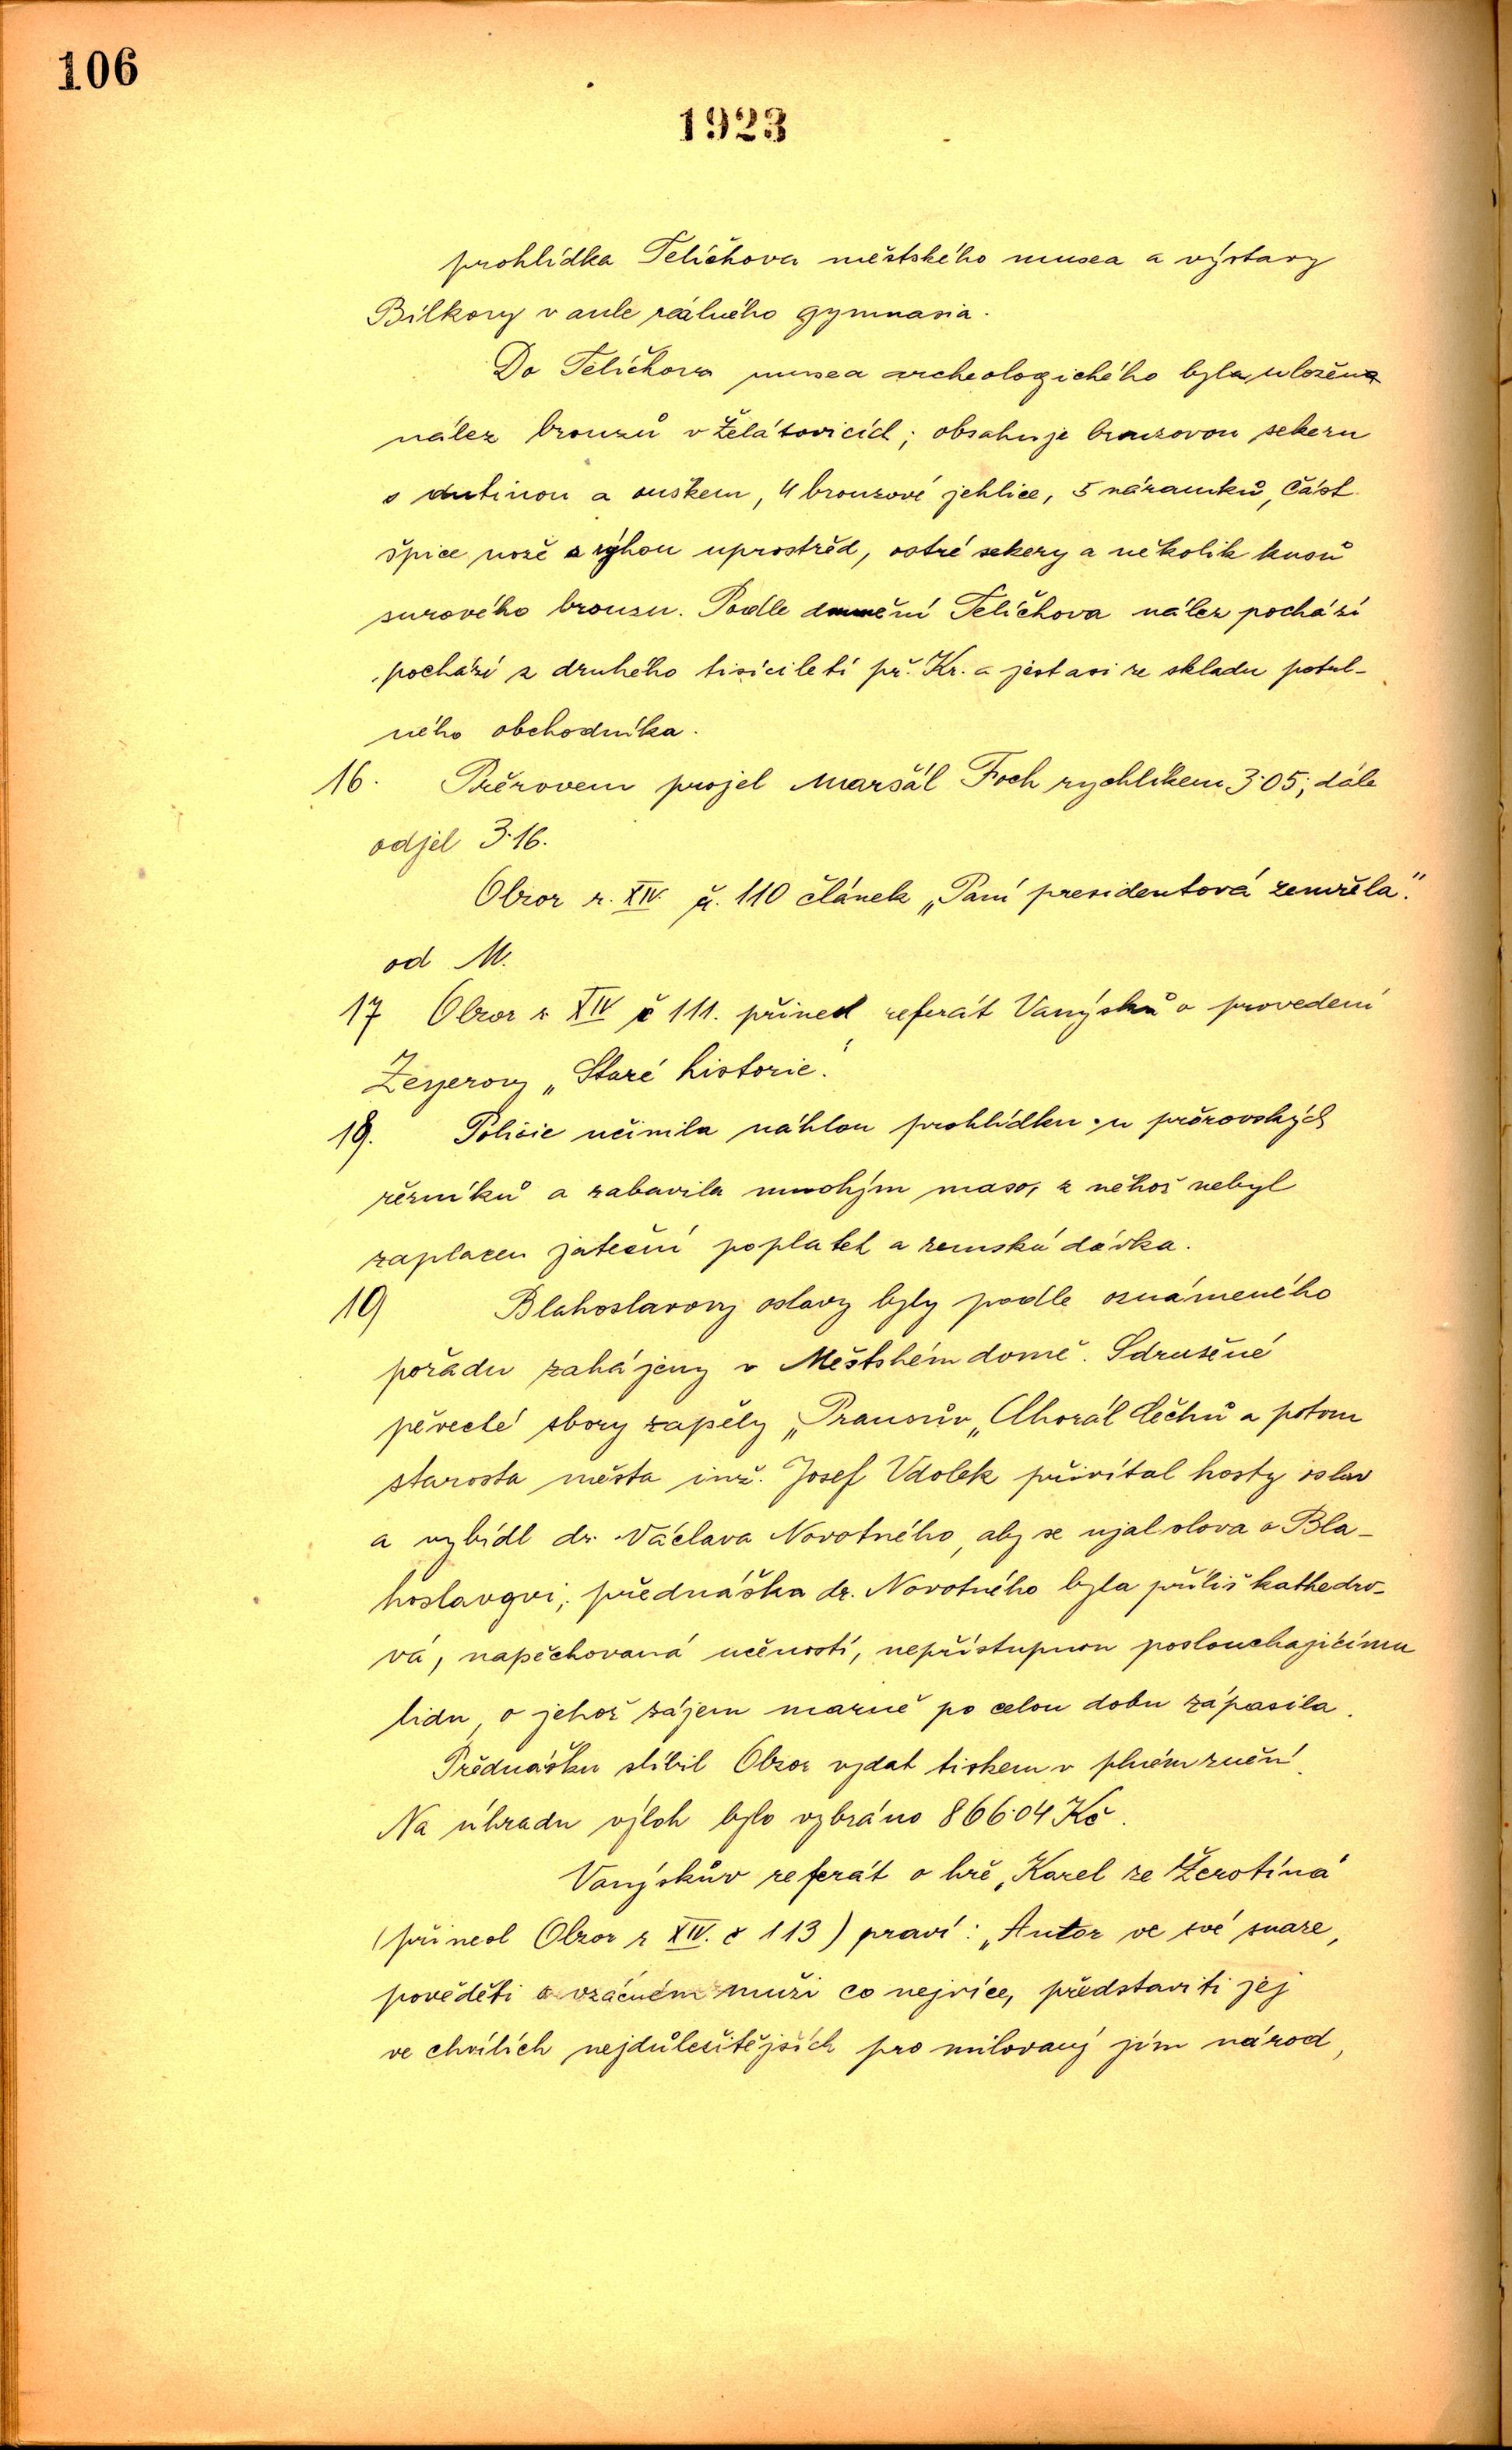 106
1923
prohlídka Telíčkova městského musea a výstavy
Bílkovy v aule reálného gymnasia.
Do Telíčkova musea archeologického byla uložena
nález bronzů v Želátovicích; obsahuje bronzovou sekeru
s dutinou a ouškem, 4 bronzové jehlice, 5 náramků, část
špice nože s rýhou uprostřed, ostré sekery a několik kusů
surového bronzu. Podle domnění Telíčkova nález pochází
pochází z druhého tisíciletí př. Kr. a jest asi ze skladu potul-
ného obchodníka.
16. Přerovem projel maršál Foch rychlíkem 3·05; dále
odjel 3·16.
Obzor r. XIV. č. 110 článek „Paní presidentová zemřela“.
od M.
17 Obzor r XIV č 111. přinesl referát Vanýskův o provedení
Zeyerovy „Staré historie“.
18. Policie učinila náhlou prohlídku u přerovských
řezníků a zabavila mnohým maso, z něhož nebyl
zaplacen jateční poplatek a zemská dávka.
19 Blahoslavovy oslavy byly podle oznámeného
pořadu zahájeny v Městském domě. Sdružené
pěvecké sbory zapěly „Prausův „Chorál Čechů a potom
starosta města inž. Josef Vdolek přivítal hosty oslav
a vybídl dr. Václava Novotného, aby se ujal slova o Bla-
hoslavovi; přednáška dr. Novotného byla příliš kathedro-
vá, napěchovaná učeností, nepřístupnou poslouchajícímu
lidu, o jehož zájem marně po celou dobu zápasila.
Přednášku slíbil Obzor vydat tiskem v plném znění.
Na úhradu výloh bylo vybráno 866·04 Kč.
Vanýskův referát o hře „Karel ze Žerotína“
(přinesl Obzor r XIV. č 113) praví: „Autor ve své snaze,
pověděti o vzácném muži co nejvíce, představiti jej
ve chvílích nejdůležitějších pro milovaný jím národ,